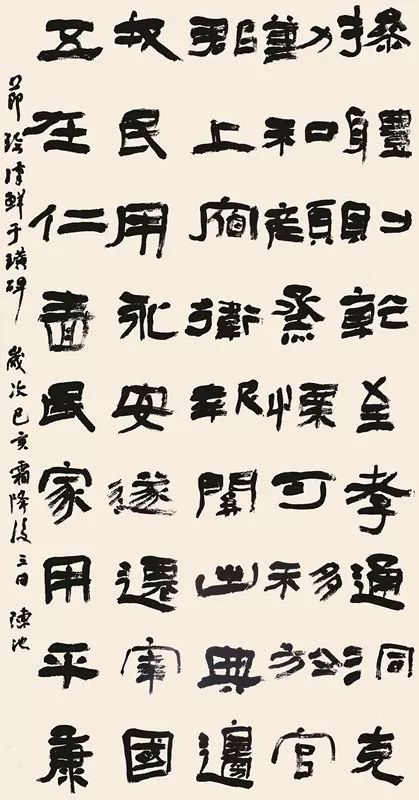 操體則乾至孝通洞克
勤和顏烝慄可移於官
郡上宿衛報關出典邊
牧民用永安遂遷宰國
五在仁嗇民家用平康
節臨漢鮮于璜碑 歲次己亥霜降後三日 陳